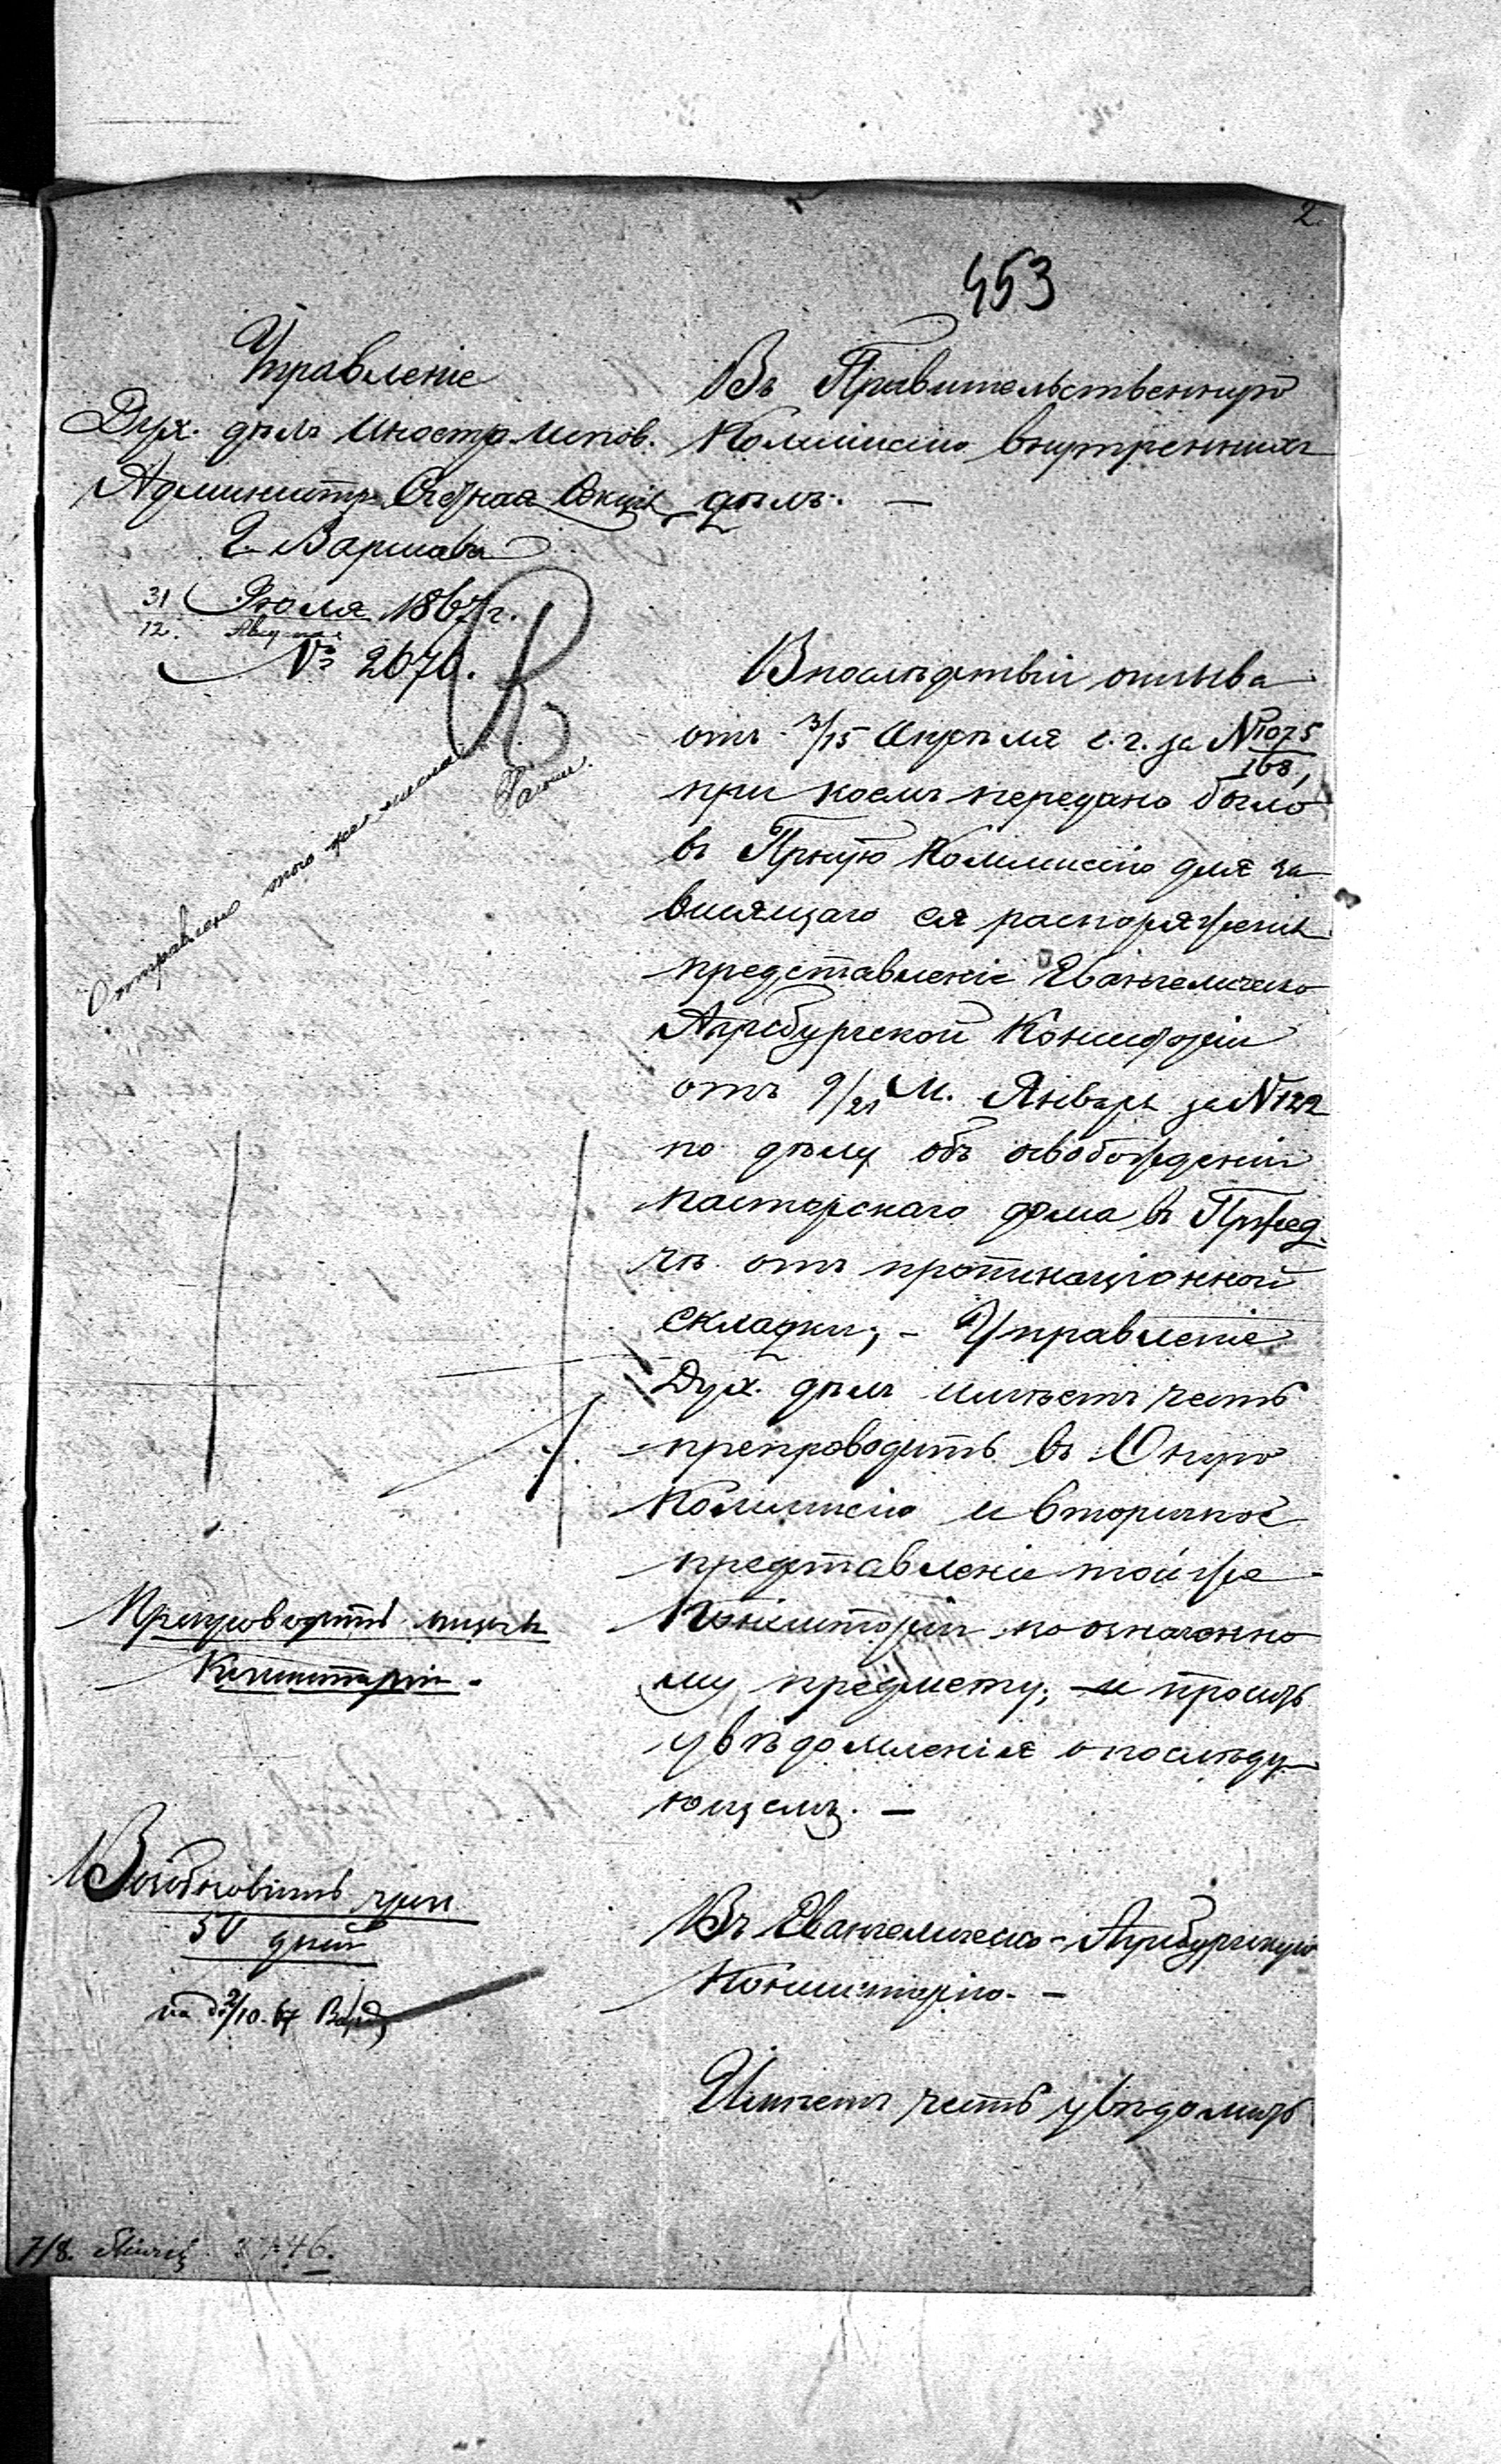 2.
453
Управленіе
Дух. дѣлъ Иностр. Испов.
Администр. Счетная Секція
Г. Варшава
31 Іюля 1867 г.
12. Августа
№ 2670.
Отправлено того же числа
Въ Правительственную
Коммисію Внутреннихъ
дѣлъ. —
Впослѣдствіи отзыва
отъ 3/15 Апрѣля с. г. за № 1075/168,
при коемъ передано было
въ Прную Коммисію для за
висящаго ея распоряженія
представленіе Евангелическо
Аугсбургской Консисторіи
отъ 9/21 м. Января за № 122
по дѣлу объ освобожденіи
пасторскаго дома въ Пржед
чѣ отъ пропинаціонной
складки, — Управленіе
Дух. дѣлъ имѣетъ честь
препроводить въ Оную
Коммисію и вторичное
представленіе той же
Консисторіи по означенно
му предмету, и проситъ
увѣдомленія о послѣду
ющемъ. —
Препроводить
Консисторіи.
Возобновить чрез
50 дней
2/10. 67
Въ Евангелическо-Аугсбургскую
Консисторію. —
Имѣетъ честь увѣдомить
7/8.
46.